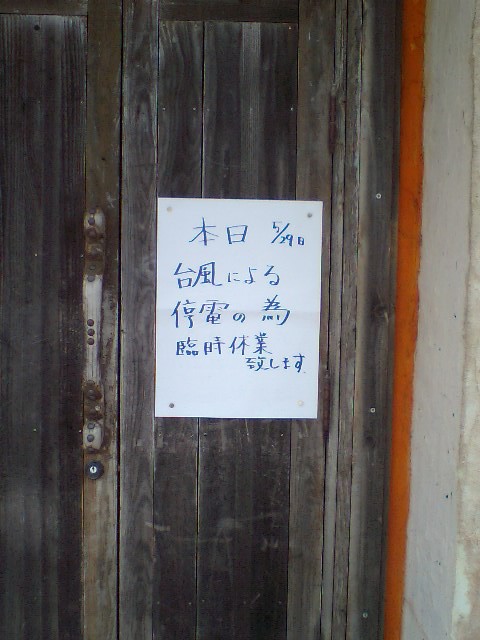 本日 5/29日
台風による
停電の為
臨時休業
致します